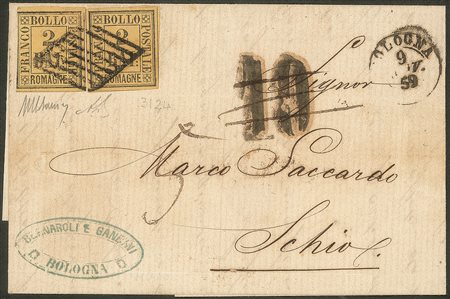 FRANCO BOLLO POSTALE
2
ROMAGNE
FRANCO BOLLO POSTALE
2
ROMAGNE
3124
BOLOGNA
9
59
10
Signor
Marco Saccardo
5
Schio
E GANDINI
BOLOGNA